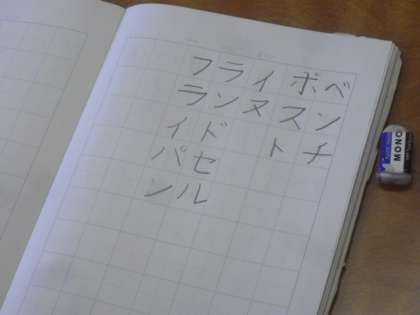 ベンチ
ポスト
イヌ
ランドセル
フライパン
MONO